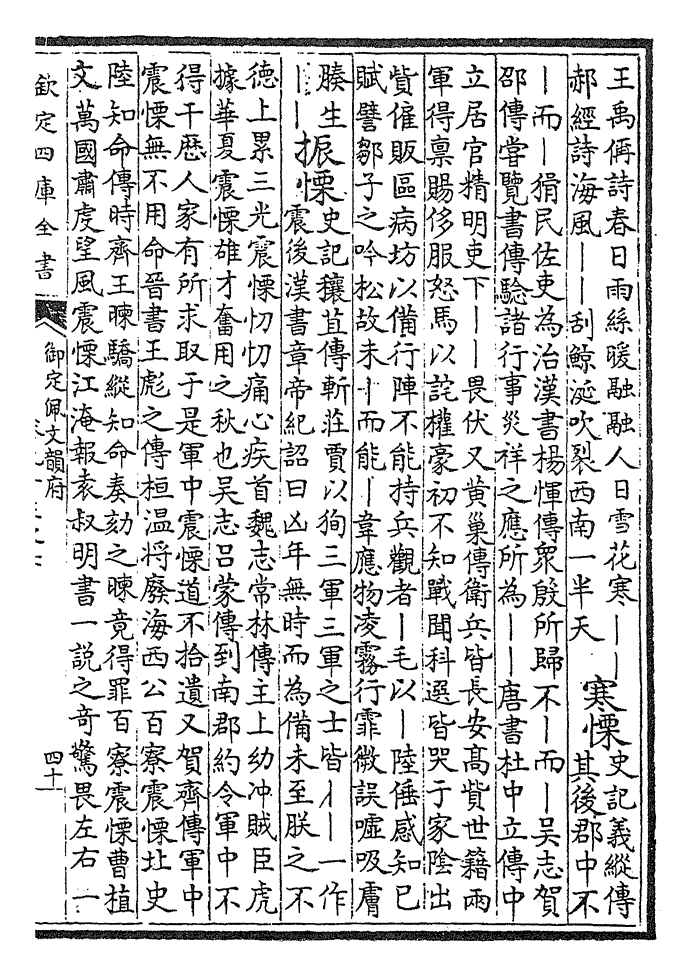 王禹偁詩春日雨絲暖融融人日雪花寒丨丨
郝經詩海風丨丨刮鯨涎吹裂西南一半天 寒慄 史記義縱傳其後郡中不
丨而丨猾民佐吏為治漢書楊惲傳衆毀所歸不丨而丨吳志賀
邵傳嘗覽書傳驗諸行事災祥之應所為丨丨唐書杜中立傳中
立居官精明吏下丨丨畏伏又黄巢傳衛兵皆長安髙貲世籍兩
軍得稟賜侈服怒馬以詫權豪初不知戰聞科選皆哭于家陰出
貲僱販區病坊以備行陣不能持兵觀者丨毛以丨陸倕感知已
賦譬鄒子之吟松故未丨而能丨韋應物凌霧行霏微誤噓吸膚
腠生丨丨 振慄 史記穰苴傳斬莊賈以狥三軍三軍之士皆丨丨一作
震後漢書章帝紀詔曰凶年無時而為備未至朕之不
德上累三光震慄忉忉痛心疾首魏志常林傳主上幼冲賊臣虎
據華夏震慄雄才奮用之秋也吳志吕蒙傳到南郡約令軍中不
得干歴人家有所求取于是軍中震慄道不拾遺又賀齊傳軍中
震慄無不用命晉書王彪之傳桓温將廢海西公百寮震慄北史
陸知命傳時齊王暕驕縱知命奏劾之暕竟得罪百寮震慄曹植
文萬國肅虔望風震慄江淹報袁叔明書一説之奇驚畏左右一
欽定四庫全書
御定佩文韻府
四十一